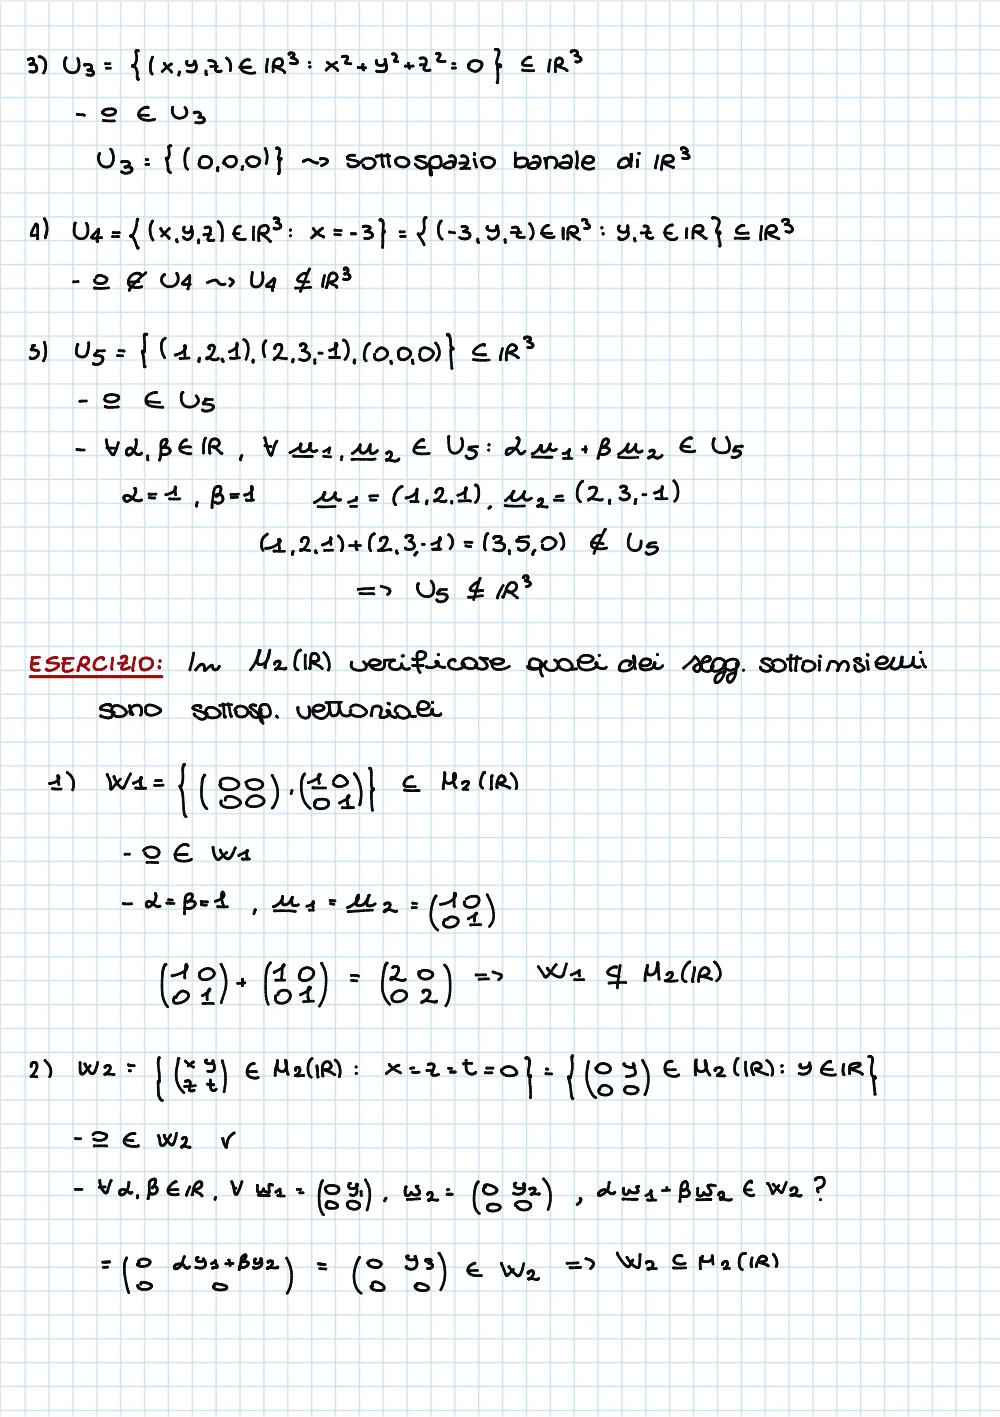 3) U3 = {(x,y,z) ∈ IR³: x²+y²+z²=0} ⊆ IR³
- 0 ∈ U3
U3 = {(0,0,0)} ~> sottospazio banale di IR³
4) U4 = {(x,y,z) ∈ IR³: x = -3} = {(-3,y,z) ∈ IR³: y,z ∈ IR} ⊆ IR³
- 0 ∉ U4 ~> U4 ⊈ IR³
5) U5 = {(1,2,1),(2,3,-1),(0,0,0)} ⊆ IR³
- 0 ∈ U5
- ∀α,β ∈ IR, ∀ u1,u2 ∈ U5: αu1+βu2 ∈ U5
α=1, β=1 u1=(1,2,1), u2=(2,3,-1)
(1,2,1)+(2,3,-1)=(3,5,0) ∉ U5
=> U5 ⊈ IR³
ESERCIZIO: In M2(IR) verificare quali dei segg. sottoinsiemi
sono sottosp. vettoriali
1) W1 = {(0 0 / 0 0),(1 0 / 0 1)} ⊆ M2(IR)
- 0 ∈ W1
- α=β=1, u1=u2=(1 0 / 0 1)
(1 0 / 0 1)+(1 0 / 0 1) = (2 0 / 0 2) => W1 ⊈ M2(IR)
2) W2 = {(x y / z t) ∈ M2(IR): x=z=t=0} = {(0 y / 0 0) ∈ M2(IR): y ∈ IR}
- 0 ∈ W2 ✓
- ∀α,β ∈ IR, ∀ w1=(0 y1 / 0 0), w2=(0 y2 / 0 0), αw1+βw2 ∈ W2?
=(0 αy1+βy2 / 0 0) = (0 y3 / 0 0) ∈ W2 => W2 ⊆ M2(IR)